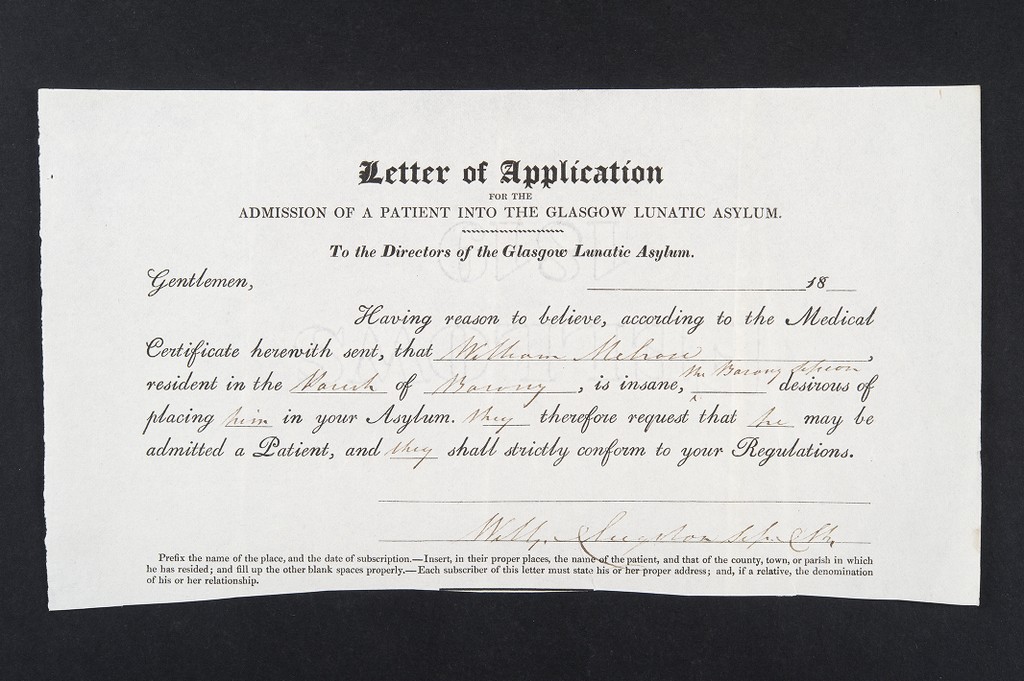 Letter of Application
FOR THE
ADMISSION OF A PATIENT INTO THE GLASGOW LUNATIC ASYLUM.
To the Directors of the Glasgow Lunatic Asylum.
Gentlemen,
18
Having reason to believe, according to the Medical
Certificate herewith sent, that William Melrose,
the Barony
resident in the Parish of Barony, is insane, desirous of
placing him in your Asylum. they therefore request that he may be
admitted a Patient, and they shall strictly conform to your Regulations.
Prefix the name of the place, and the date of subscription.—Insert, in their proper places, the name of the patient, and that of the county, town, or parish in which
he has resided; and fill up the other blank spaces properly.—Each subscriber of this letter must state his or her proper address; and, if a relative, the denomination
of his or her relationship.